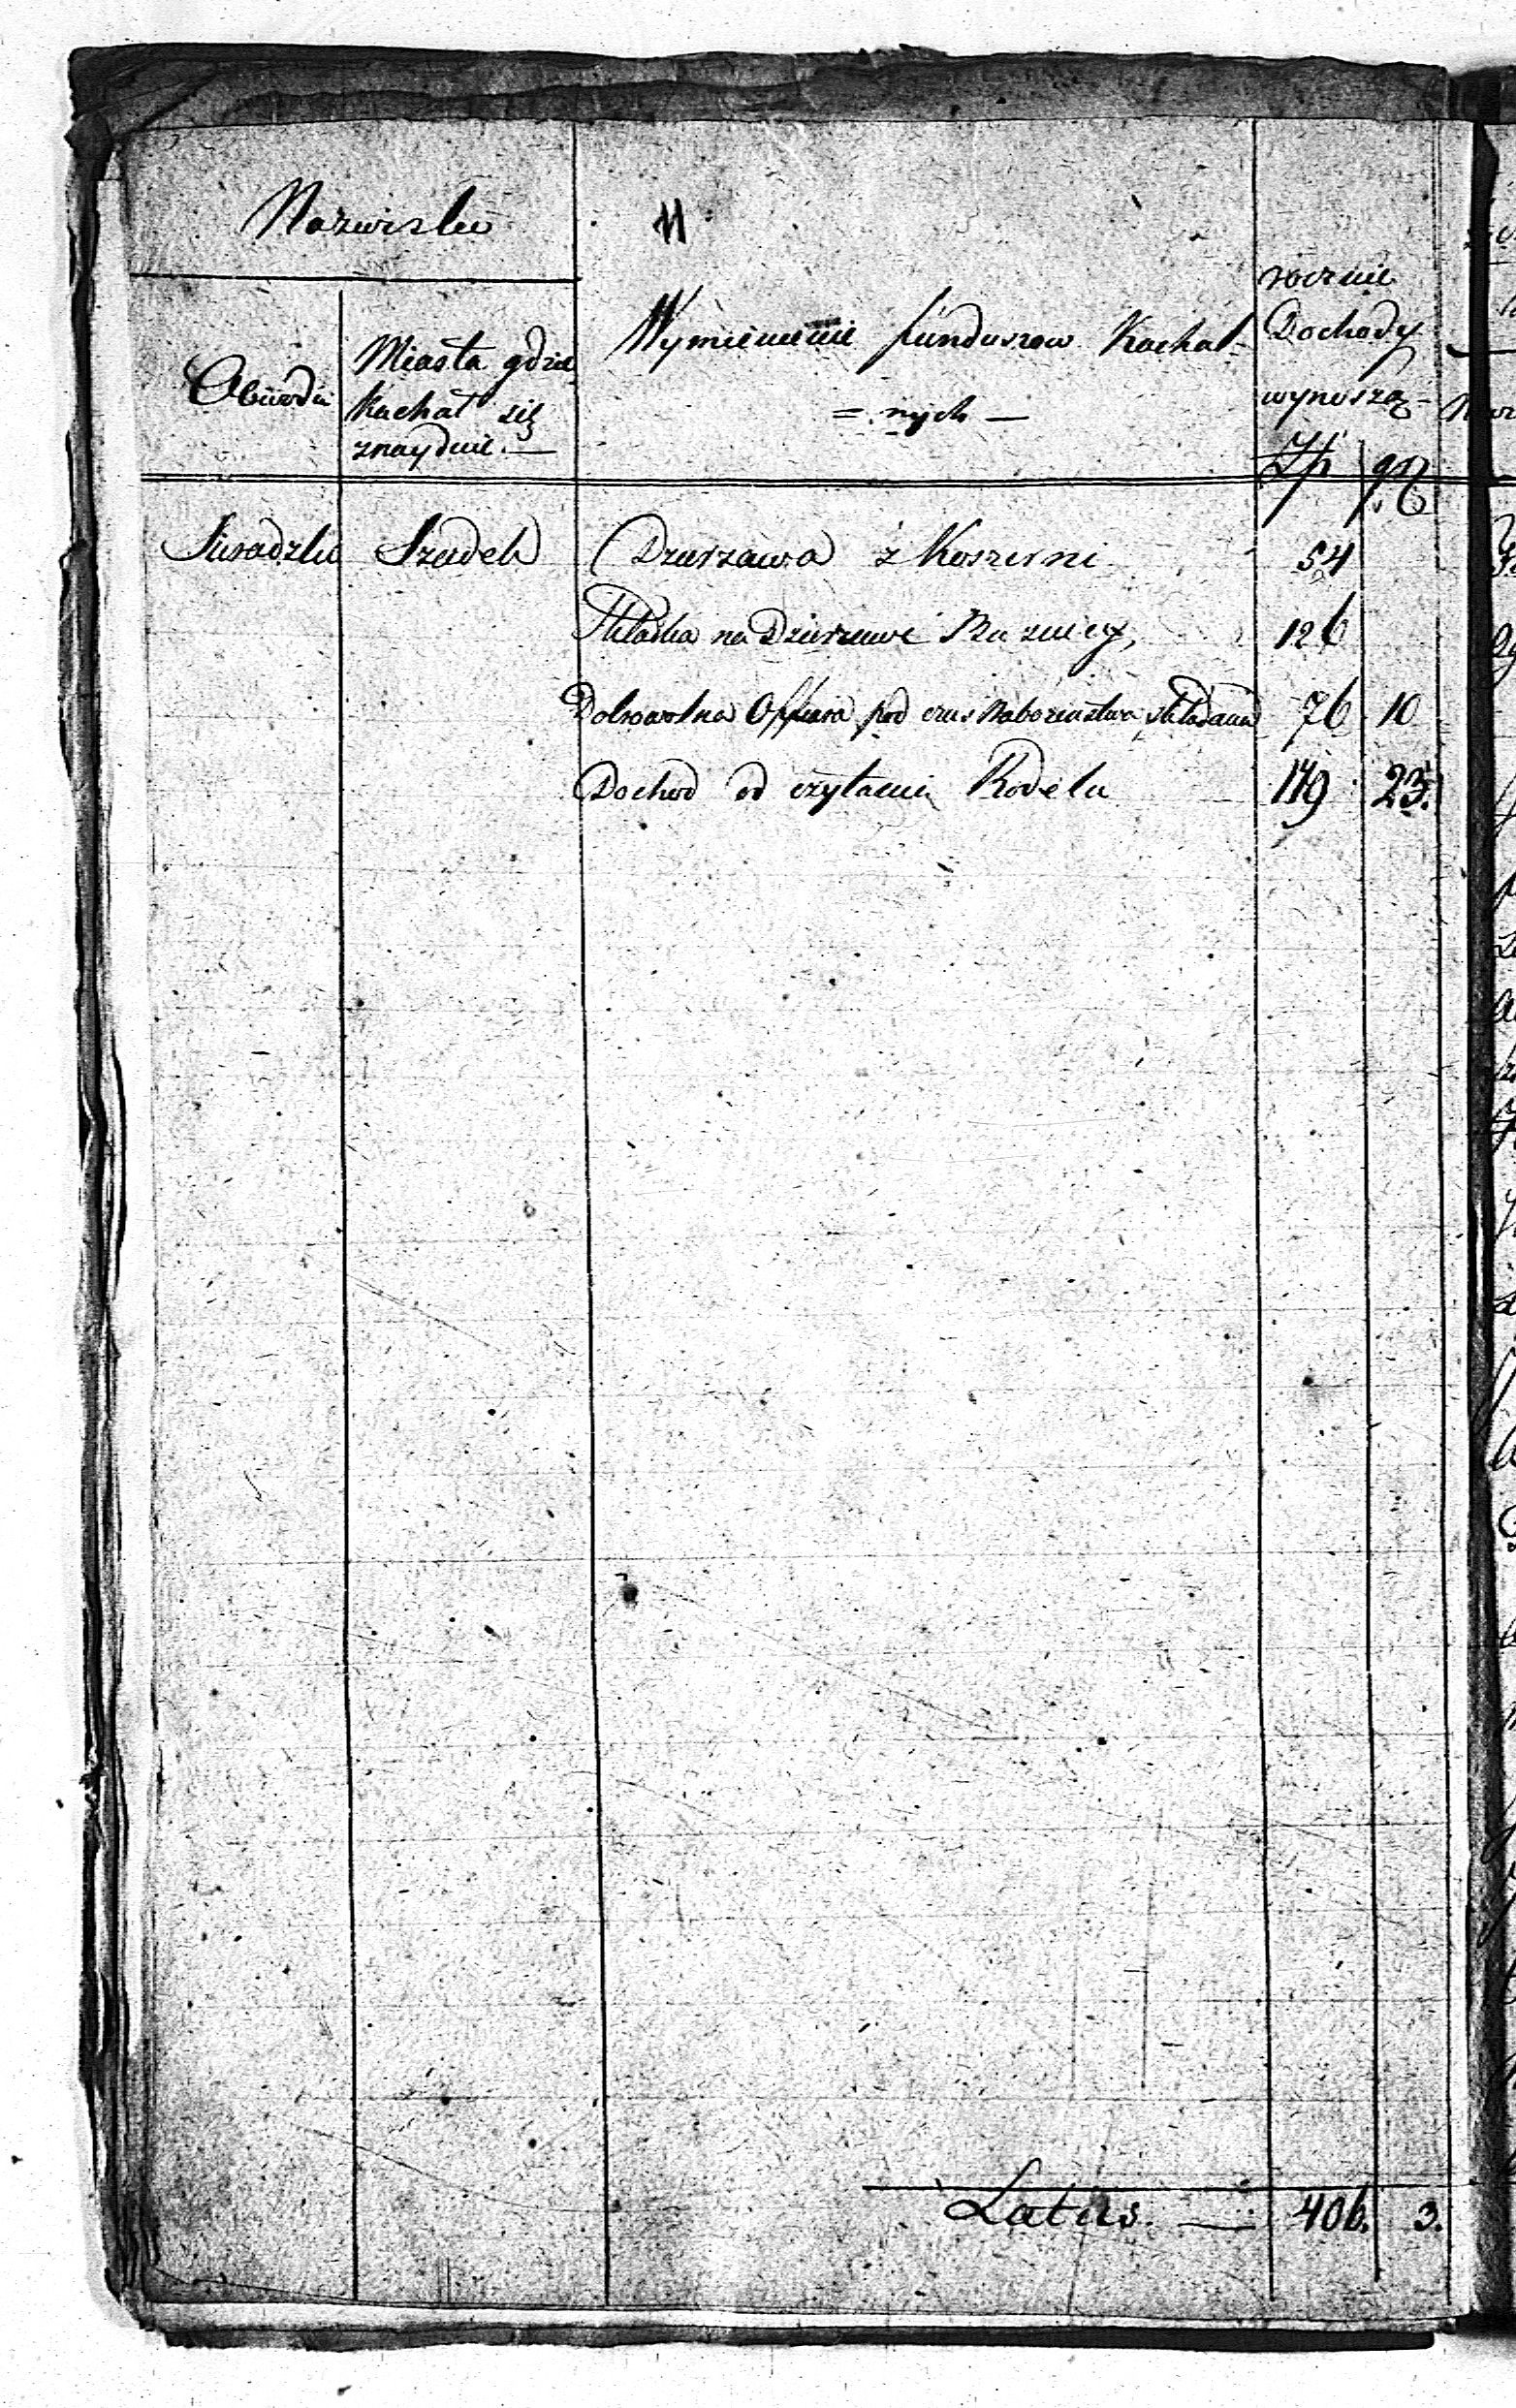 Nazwisko
11
Obwodu
Miasta gdzie
kachał się
znayduie. —
Wymienienie funduszow Kachal-
= nych —
rocznie
Dochody
wynoszą -
Zp gr
Siradzki Szadek Dzierzawa z Koszerni 54
Składka na Dzierzawe Buznicy, 126
Dobrowolna Offiara pod czas Nabozenstwa składana 76 10
Dochod od czytania Rodełu 149 23.
Latus. — 406. 3.